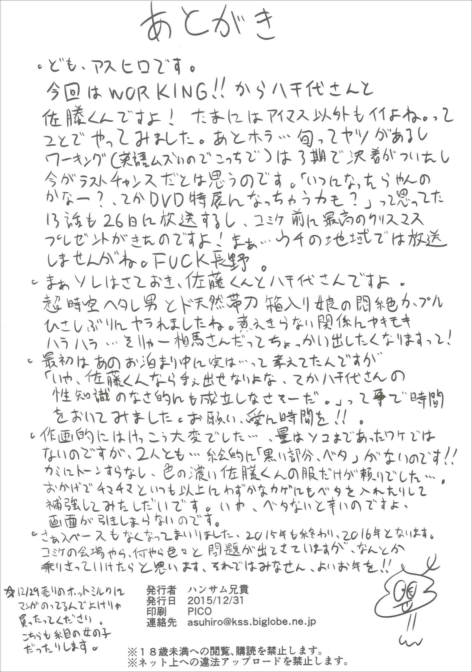 あとがき
・ども、アスヒロです。
今回はWORKING!!からハチ代さんと
佐藤くんですよ! たまにはアイマス以外もイイよね。って
コトでやってみました。あとホラ…旬ってヤツがあるし
ワーキング(英語ムズいのでこっちで)は3期で決着がついたし
今がラストチャンスだとは思うのです。「いつになったらやんの
かなー?、てかDVD特展になっちゃうかも?」って思ってた
13話も26日に放送するし、コミケ前に最高のクリスマス
プレゼントがきたのですよ!まぁ…ウチの地域では放送
しませんがね。FUCK長野。
・まぁソレはさておき、佐藤くんとハチ代さんですよ。
超時空ヘタレ男とド天然帯刀箱入り娘の悶絶カップル
ひさしぶりにヤラれましたね。煮えきらない関係にヤキモキ
ハラハラ…そりゃー相馬さんだってちょっかい出したくなりますって!
・最初はあのお泊まり中に実は…って考えてたんですが
「いや、佐藤くんなら手ぇ出せなりよな、てかハチ代さんの
性知識のなさ的にも成立しなさそーだ。」って事で時間
をおいてみました。お願い、愛に時間を!!。
・作画的にはけっこう大変でした…、量はソコまであったワケでは
ないのですが、2人とも…絵的に「黒い部分、ベタ」がないのです!!
カミにトーンすらなし、色の濃い佐藤くんの服だけが頼りでした…。
おかげでチマチマといつも以上にわずかなカゲにもベタを入れたりして
補強してみたしだいです。いわ、ベタないと辛いのですよ、
画面が引きしまらないので。
・さぁスペースもなくなってまいりました、2015年も終わり、2016年となります。
コミケの会場やら、何やら色々と問題が出てきていますが、なんとか
乗りきっていけたらと思います、それではみなさん、よいお年を!!
☆12/29売りのホットミルクに
マンガのってるんでよけりゃ
買ったってください。
こちらも糸目の女の子
だったりします。
発行者 ハンサム兄貴
発行日 2015/12/31
印刷 PICO
連絡先 asuhiro@kss.biglobe.ne.jp
※18歳未満への閲覧、購読を禁止します。
※ネット上への違法アップロードを禁止します。